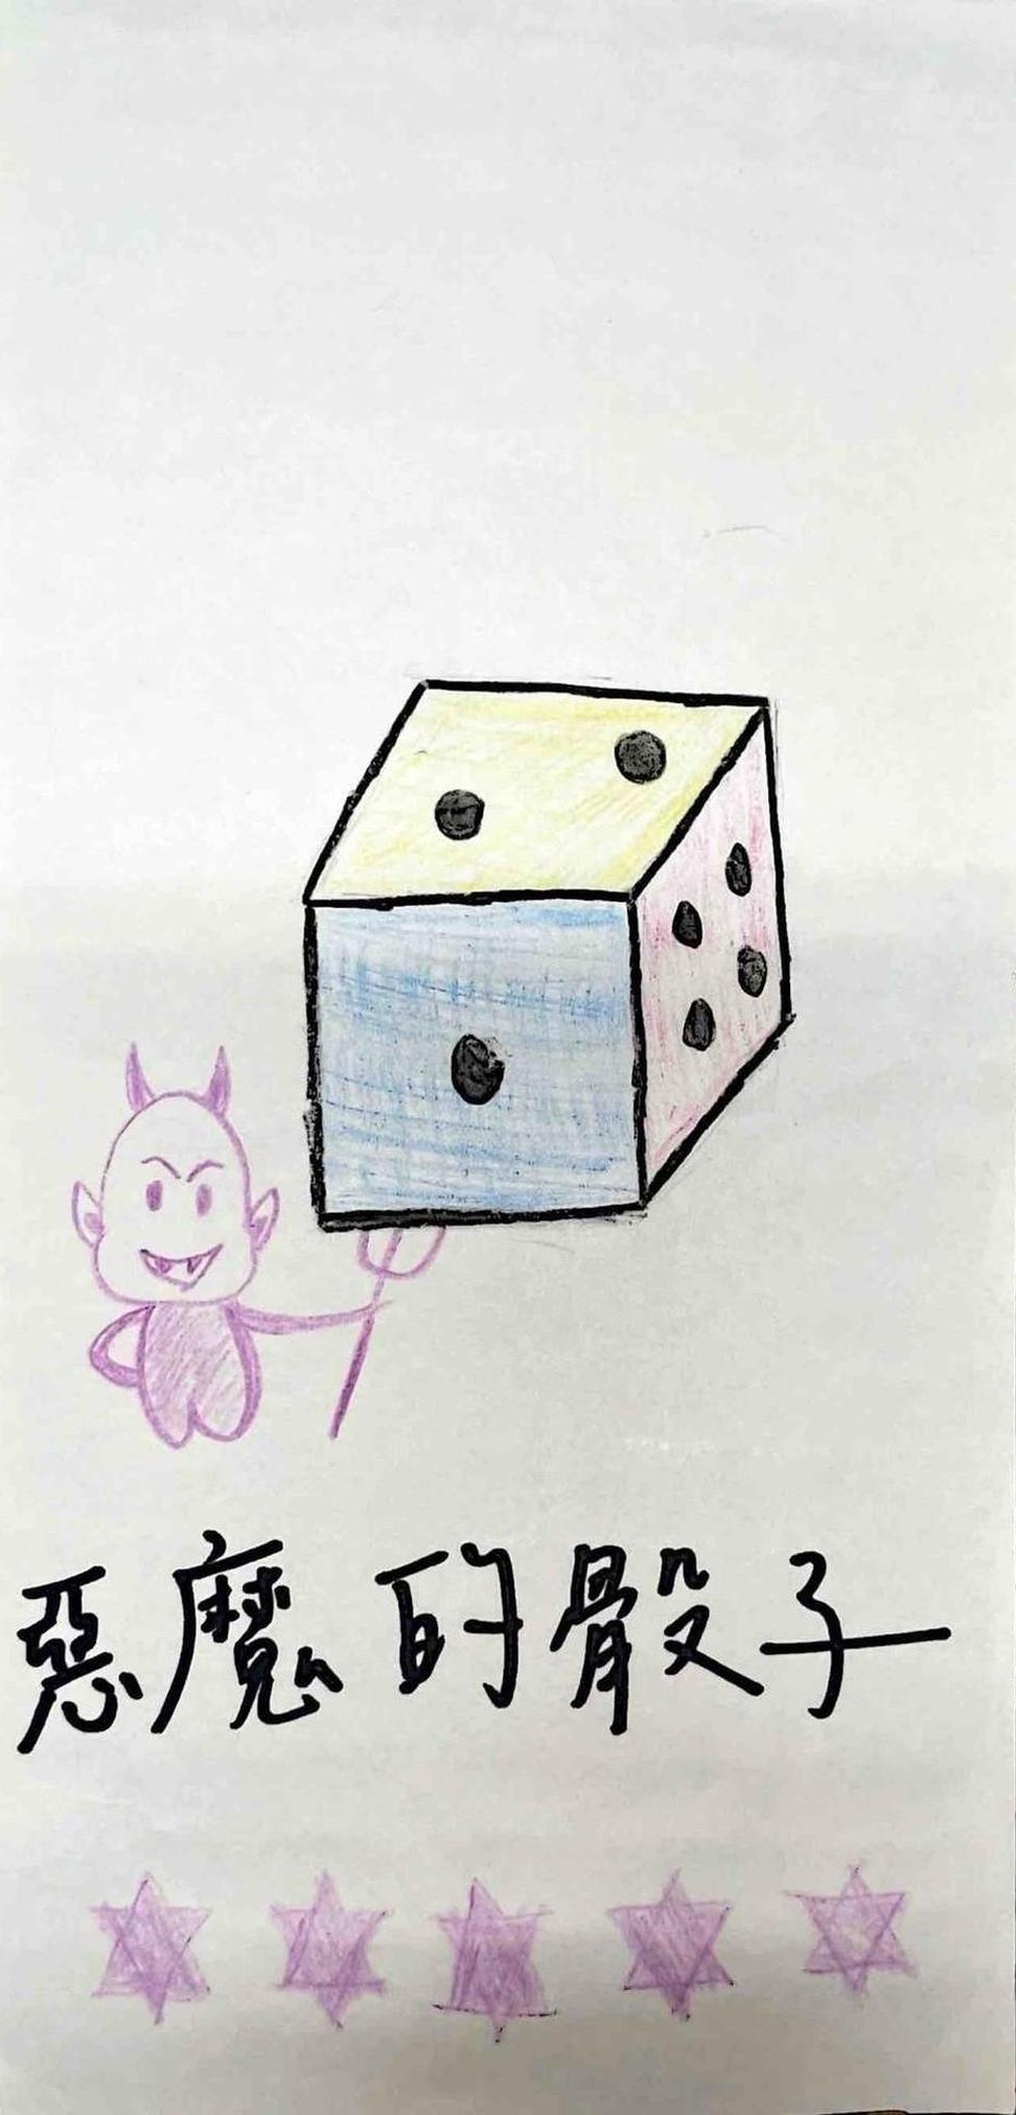 惡魔的骰子